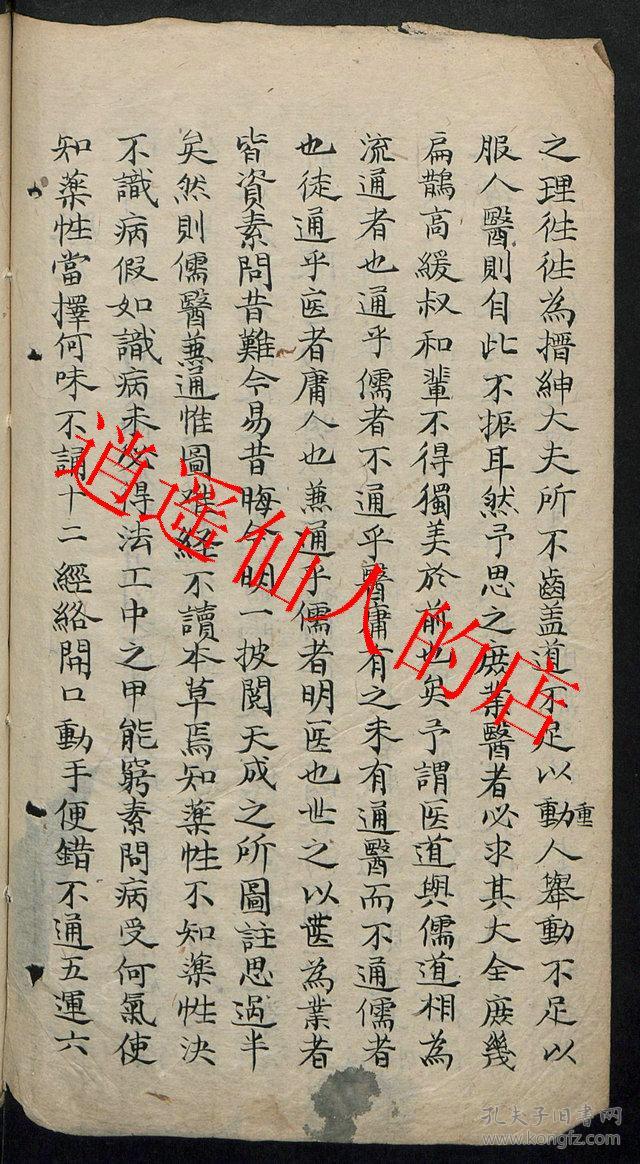 之理徃徃為搢紳大夫所不齒盖道不足以動人舉動不足以
重
服人醫則自此不振耳然予思之庶業醫者必求其大全庶幾
扁鵲高緩叔和輩不得獨美於前也矣予謂医道與儒道相為
流通者也通乎儒者不通乎醫庸有之未有通醫而不通儒者
也徒通乎医者庸人也兼通乎儒者明医也世之以醫為業者
皆資素問昔難今易昔晦今明一披閱天成之所圖註思過半
矣然則儒醫兼通惟圖難経不讀本草焉知藥性不知藥性決
不識病假如識病未必得法工中之甲能窮素問病受何氣使
知藥性當擇何味不誦十二經絡開口動手便錯不通五運六
逍遥仙人的店
孔夫子旧书网
www.kongfz.com